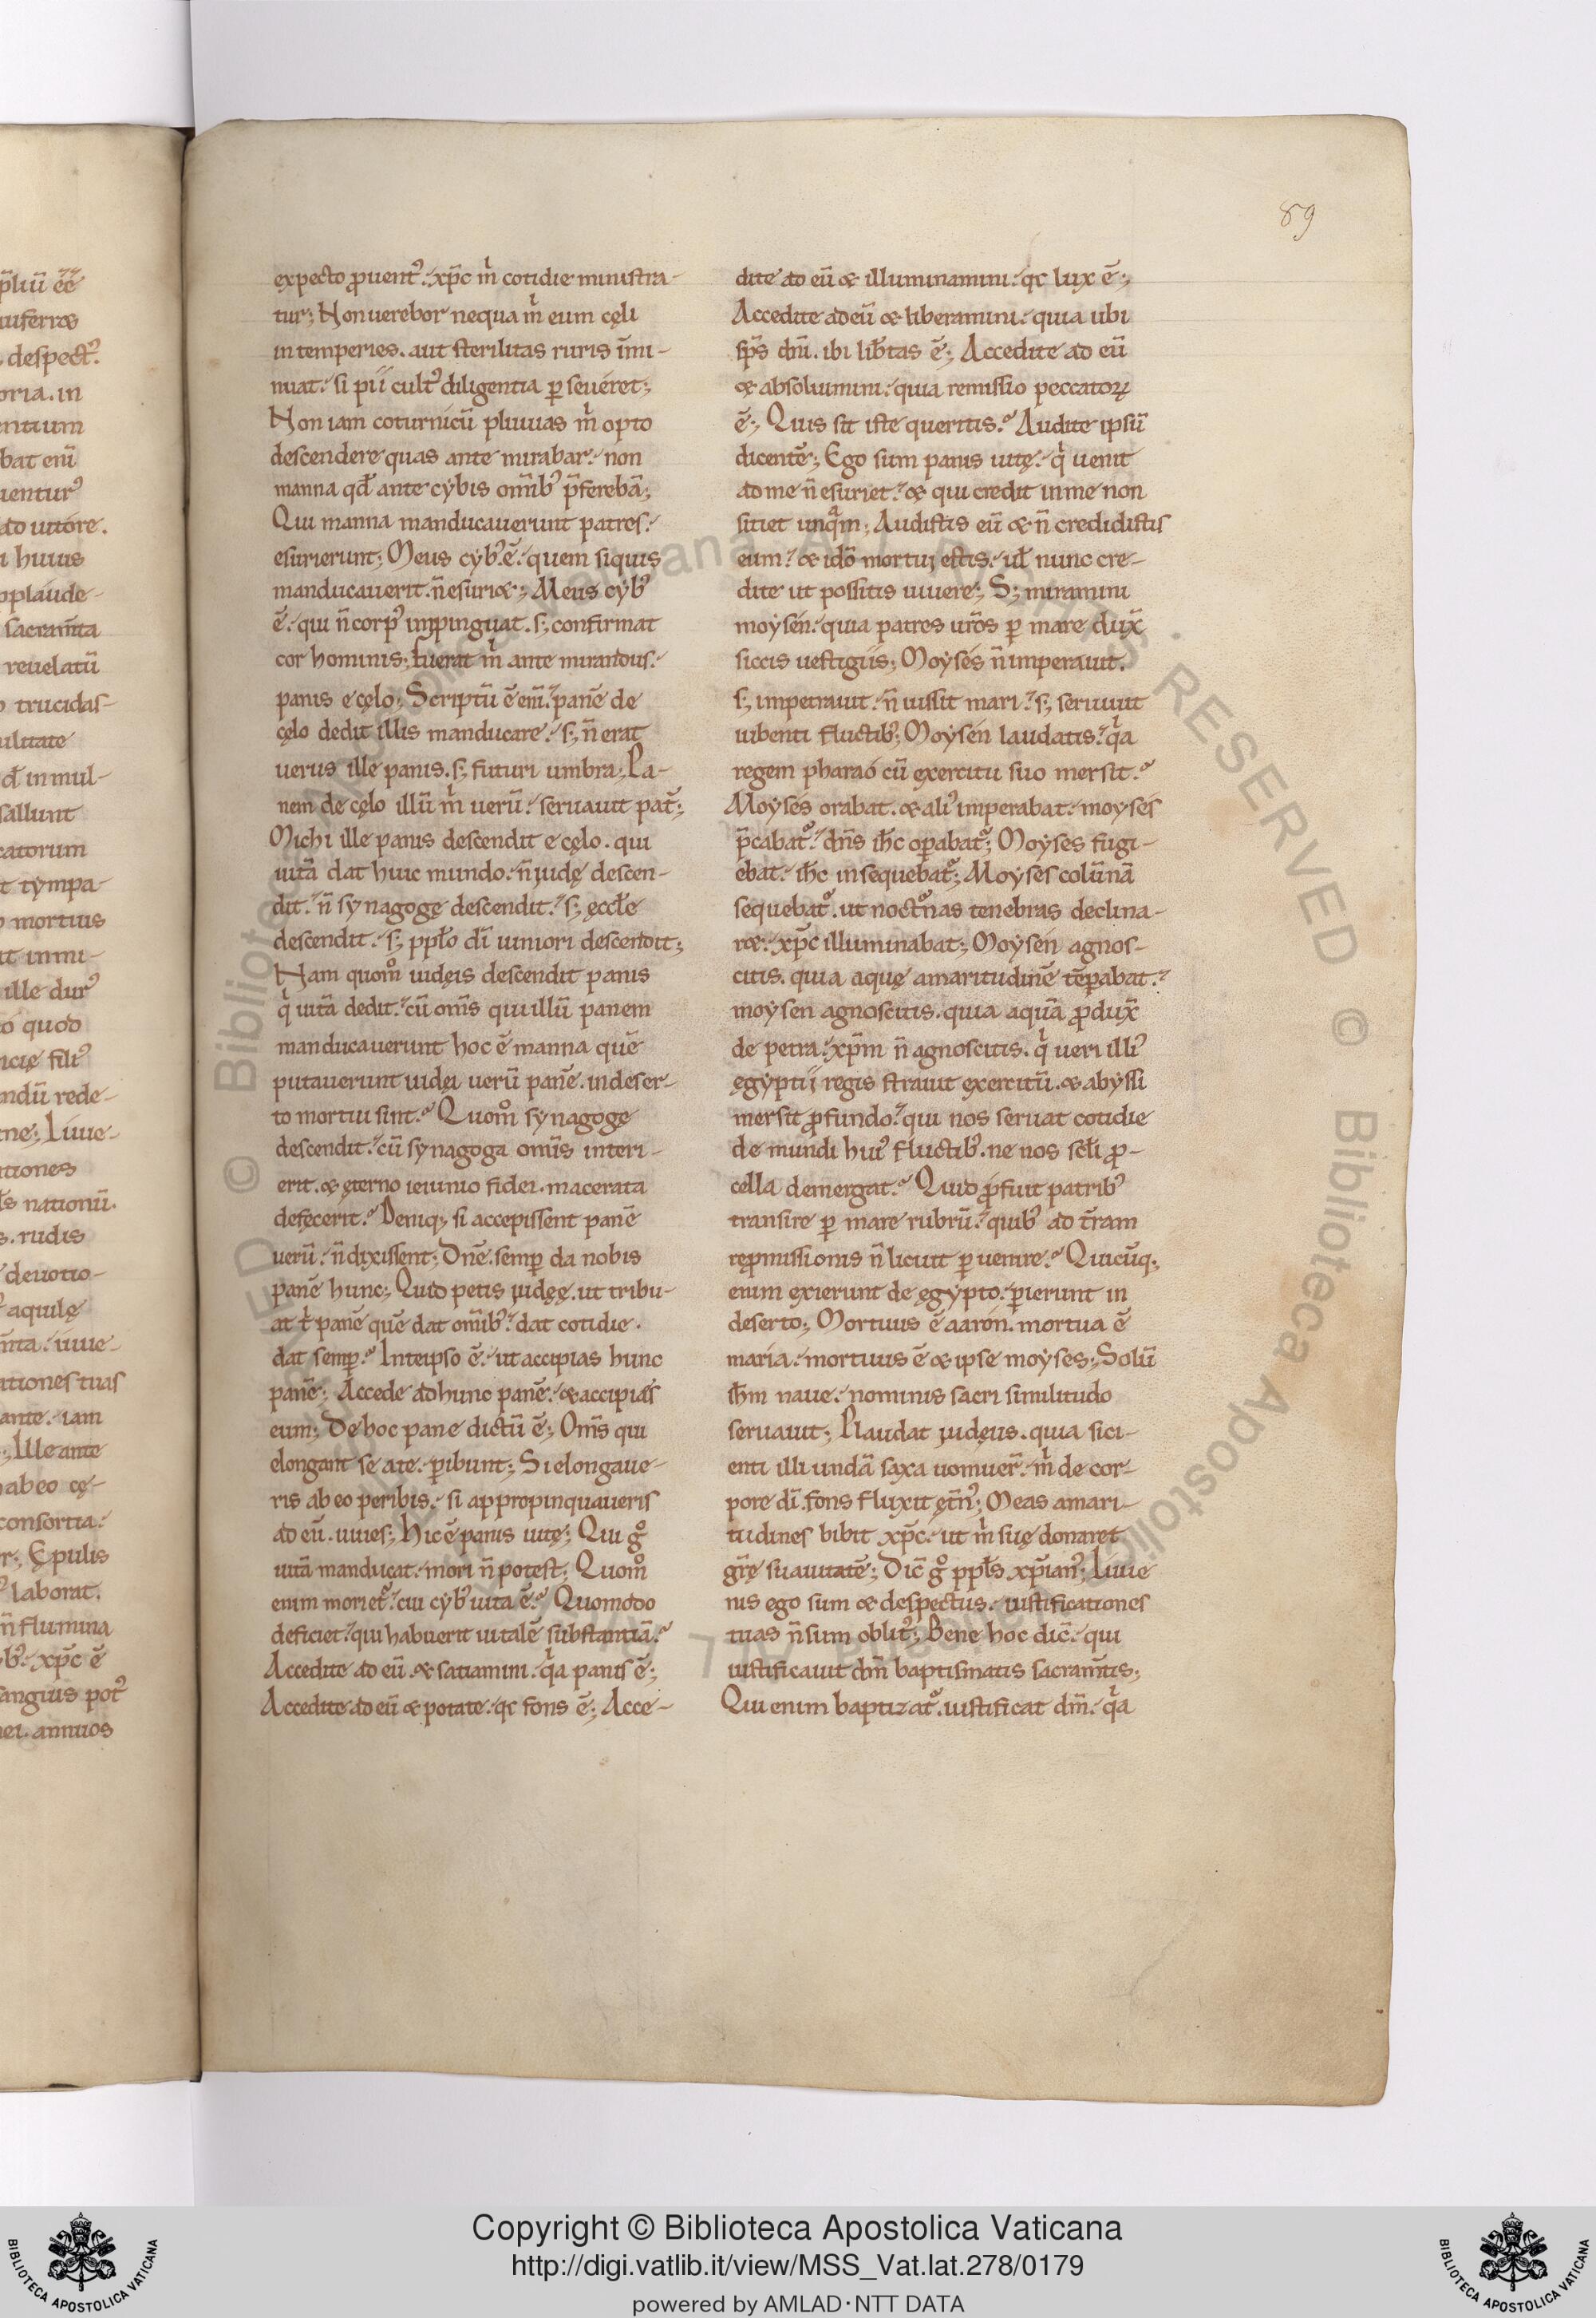 p̄liū ēē
uiferroꝫ
despect᾽.
oria. in
entium
bat eni᷃
uentur᾽
ad uitore.
i huius
pplaude-
sacram̄ta
reuelatū
o trucidas-
uilitate
đ in mul-
sallunt
catorum
t tẏmpa-
o mortuis
it inmi-
ille dur᾽
to quod
ncię fili᾽
ndū rede-
tne; Uiue-
itiones
s nationū.
s. rudis
deuotio-
aquilę
m̄ta. uiue-
itiones tuas
ante. iam
; Ille ante
habeo cę-
consortia.
r; Epulis
laborat.
n̄ flumina
b᾽. xp̄c ē
sanguis pot᾽
nei. annuos
89
expecto ꝓuent᾽. xp̄c m̊ cotidie ministra-
tur; Non uerebor nequa m̊ eum cęli
intemperies. aut sterilitas ruris īmi-
nuat. si pii cult᾽ diligentia ꝑseueret;
Non iam coturnicū pluuias m̊ opto
descendere quas ante mirabar. non
manna qđ ante cẏbis om̄ib᾽ p̄ferebā;
Qui manna manducauerunt patres.
esurierunt; Meus cẏb᾽ ē. quem siquis
manducauerit. n̄ esuriꝫ; Meus cẏb᾽
ē. qui n̄ corp᾽ impinguat. s; confirmat
cor hominis; Fuerat m̊ ante mirandus.
panis e cęlo; Scriptū ē eni᷃. panē de
cęlo dedit illis manducare. s; n̄ erat
uerus ille panis. s; futuri umbra; Pa-
nem de cęlo illū m̊ uerū. seruauit pat̄;
Michi ille panis descendit e cęlo. qui
uitā dat huic mundo. n̄ iudę descen-
dit. n̄ synagogę descendit. s; ęccl̄e
descendit. s; ppl̄o di᷃ iuniori descendit;
Nam quom̊ uidęis descendit panis
q̊ uitā dedit. cū om̄s qui illū panem
manducauerunt hoc ē manna quē
putauerunt iudęi uerū panē. in deser-
to mortui sint. Quom̊ synagogę
descendit. cū synagoga om̄is interi-
erit. & ęterno ieiunio fidei. macerata
defęcerit. Deniq; si accepissent panē
uerū. n̄ dixissent; Dn̄e. semꝑ da nobis
panē hunc; Quid petis iudęę. ut tribu-
at t̊ panē quē dat om̄ib᾽. dat cotidie.
dat semꝑ. In teipso ē. ut accipias hunc
panē; Accede ad hunc panē. & accipias
eum; De hoc pane dictū ē; Om̄s qui
elongant se a te. ꝑibunt; Si elongaue-
ris ab eo peribis. si appropinquaueris
ad eū. uiues; Hic ē panis uitę; Qui g̊
uitā manducat. mori n̄ potest; Quom̊
enim moriet᷑. cui cẏb᾽ uita ē. Quomodo
deficiet. qui habuerit uitalē substantiā.
Accedite ad eū. & satiamini. q̊a panis ē;
Accedite ad eū & potate. qc fons ē; Acce-
dite ad eū & illuminamini. qc lux ē;
Accedite ad eū & liberamini. quia ubi
sp̄s dni᷃. ibi lib̄tas ē; Accedite ad eū
& absoluimini. quia remissio peccatoꝝ
ē; Quis sit iste queritis. Audite ipsū
dicentē; Ego sum panis uitę. q̊ uenit
ad me n̄ esuriet. & qui credit in me non
sitiet unq̄m; Audistis eū & n̄ credidistis
eum. & idō mortui estis. ul̄ nunc cre-
dite ut possitis uiuere; S; miramini
moẏsen. quia patres ur̄os ꝑ mare dux̄
siccis uestigiis; Moẏses n̄ imperauit.
s; impetrauit. n̄ iussit mari. s; seruiuit
iubenti fluctib᾽; Moẏsen laudatis. q̊a
regem pharaó cū exercitu suo mersit.
Moẏses orabat. & ali᾽ imperabat. moẏses
p̄cabat᷑. dn̄s ih̄c oꝑabat᷑; Moẏses fugi-
ebat. ih̄c insequebat᷑; Moẏses colūnā
sequebat᷑. ut noct᷑nas tenebras declina-
rꝫ. xp̄c illuminabat; Moẏsen agnos-
citis. quia aquę amaritudinē tēꝑabat.
moẏsen agnoscitis. quia aquā ꝓdux̄
de petra. xp̄m n̄ agnoscitis. q̊ ueri illi᾽
ęgẏptii regis strauit exercitū. & abẏssi
mersit ꝓfundo. qui nos seruat cotidie
de mundi hui᾽ fluctib᾽. ne nos scl̄i ꝓ-
cella demergat. Quid ꝓfuit patrib᾽
transire ꝑ mare rubrū. quib᾽ ad t̄ram
reꝑmissionis n̄ licuit ꝑuenire. Quicūq;
enim exierunt de ęgẏpto. ꝑierunt in
deserto; Mortuus ē aarón. mortua ē
maria. mortuus ē & ipse moẏses; Solū
ih̄m naue. nominis sacri similitudo
seruauit; Plaudat iudęus. quia sici-
enti illi undā saxa uomuer̄. m̊ de cor-
pore di᷃. fons fluxit ęt̄n᾽; Meas amari-
tudines bibit xp̄c. ut m̊ suę donaret
gr̄ę suauitatē; Dic̄ g̊ ppl̄s xp̄ian᾽; Iuue
nis ego sum & despectus. iustificationes
tuas n̄ sum oblit᾽; Bene hoc dic̄. qui
iustificauit dm̄ baptismatis sacram̄tis;
Qui enim baptizat᷑. iustificat dm̄. q̊a
© Biblioteca Apostolica Vaticana ALL RIGHTS RESERVED
Copyright © Biblioteca Apostolica Vaticana
http://digi.vatlib.it/view/MSS_Vat.lat.278/0179
powered by AMLAD·NTT DATA
BIBLIOTECA APOSTOLICA VATICANA
BIBLIOTECA APOSTOLICA VATICANA